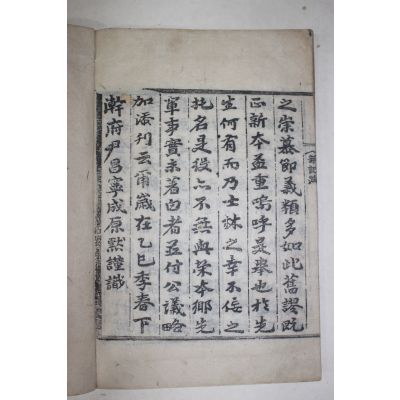 之崇慕節義類多如此舊謬旣
正新本益重嗚呼是擧也於先
生何有而乃士林之幸不佞之
托名是役亦不無與榮本鄕先
輩事實未著白者並付公議略
加添刊云爾歲在乙巳季春下
澣府尹昌寧成原默謹識